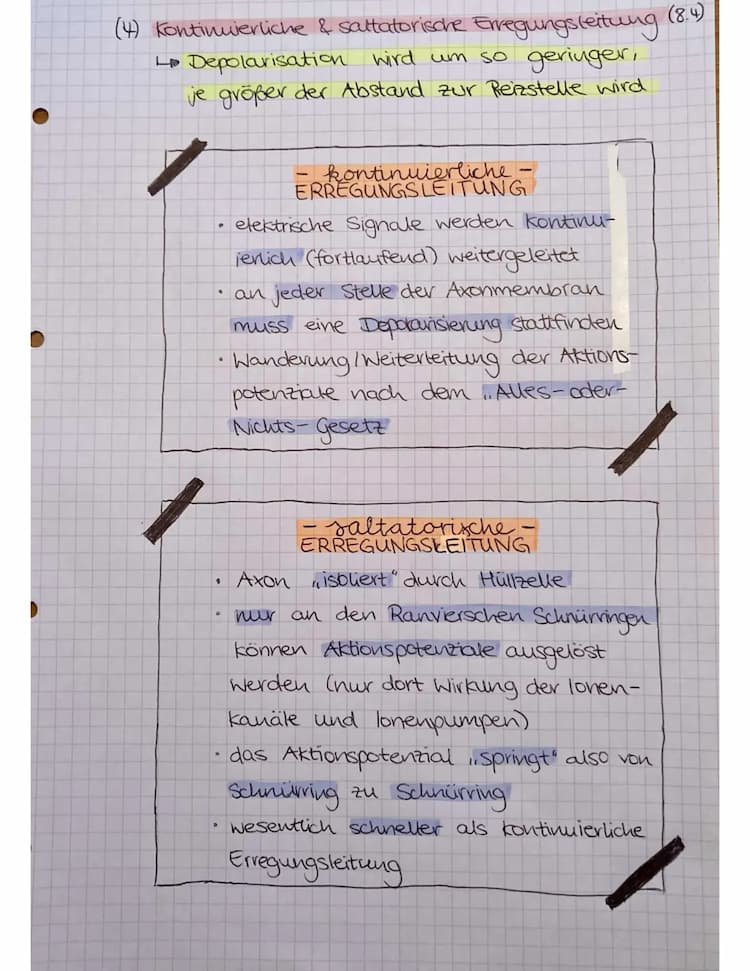 (4) Kontinuierliche & saltatorische Erregungsleitung (8.4)
↳ Depolarisation wird um so geringer,
je größer der Abstand zur Reizstelle wird
- kontinuierliche -
ERREGUNGSLEITUNG
• elektrische Signale werden kontinu-
ierlich (fortlaufend) weitergeleitet
• an jeder Stelle der Axonmembran
muss eine Depolarisierung stattfinden
• Wanderung/Weiterleitung der Aktions-
potenziale nach dem „Alles-oder-
Nichts-Gesetz
- saltatorische -
ERREGUNGSLEITUNG
• Axon „isoliert“ durch Hüllzelle
• nur an den Ranvierschen Schnürringen
können Aktionspotenziale ausgelöst
werden (nur dort Wirkung der Ionen-
kanäle und Ionenpumpen)
• das Aktionspotenzial „springt“ also von
Schnürring zu Schnürring
• wesentlich schneller als kontinuierliche
Erregungsleitung